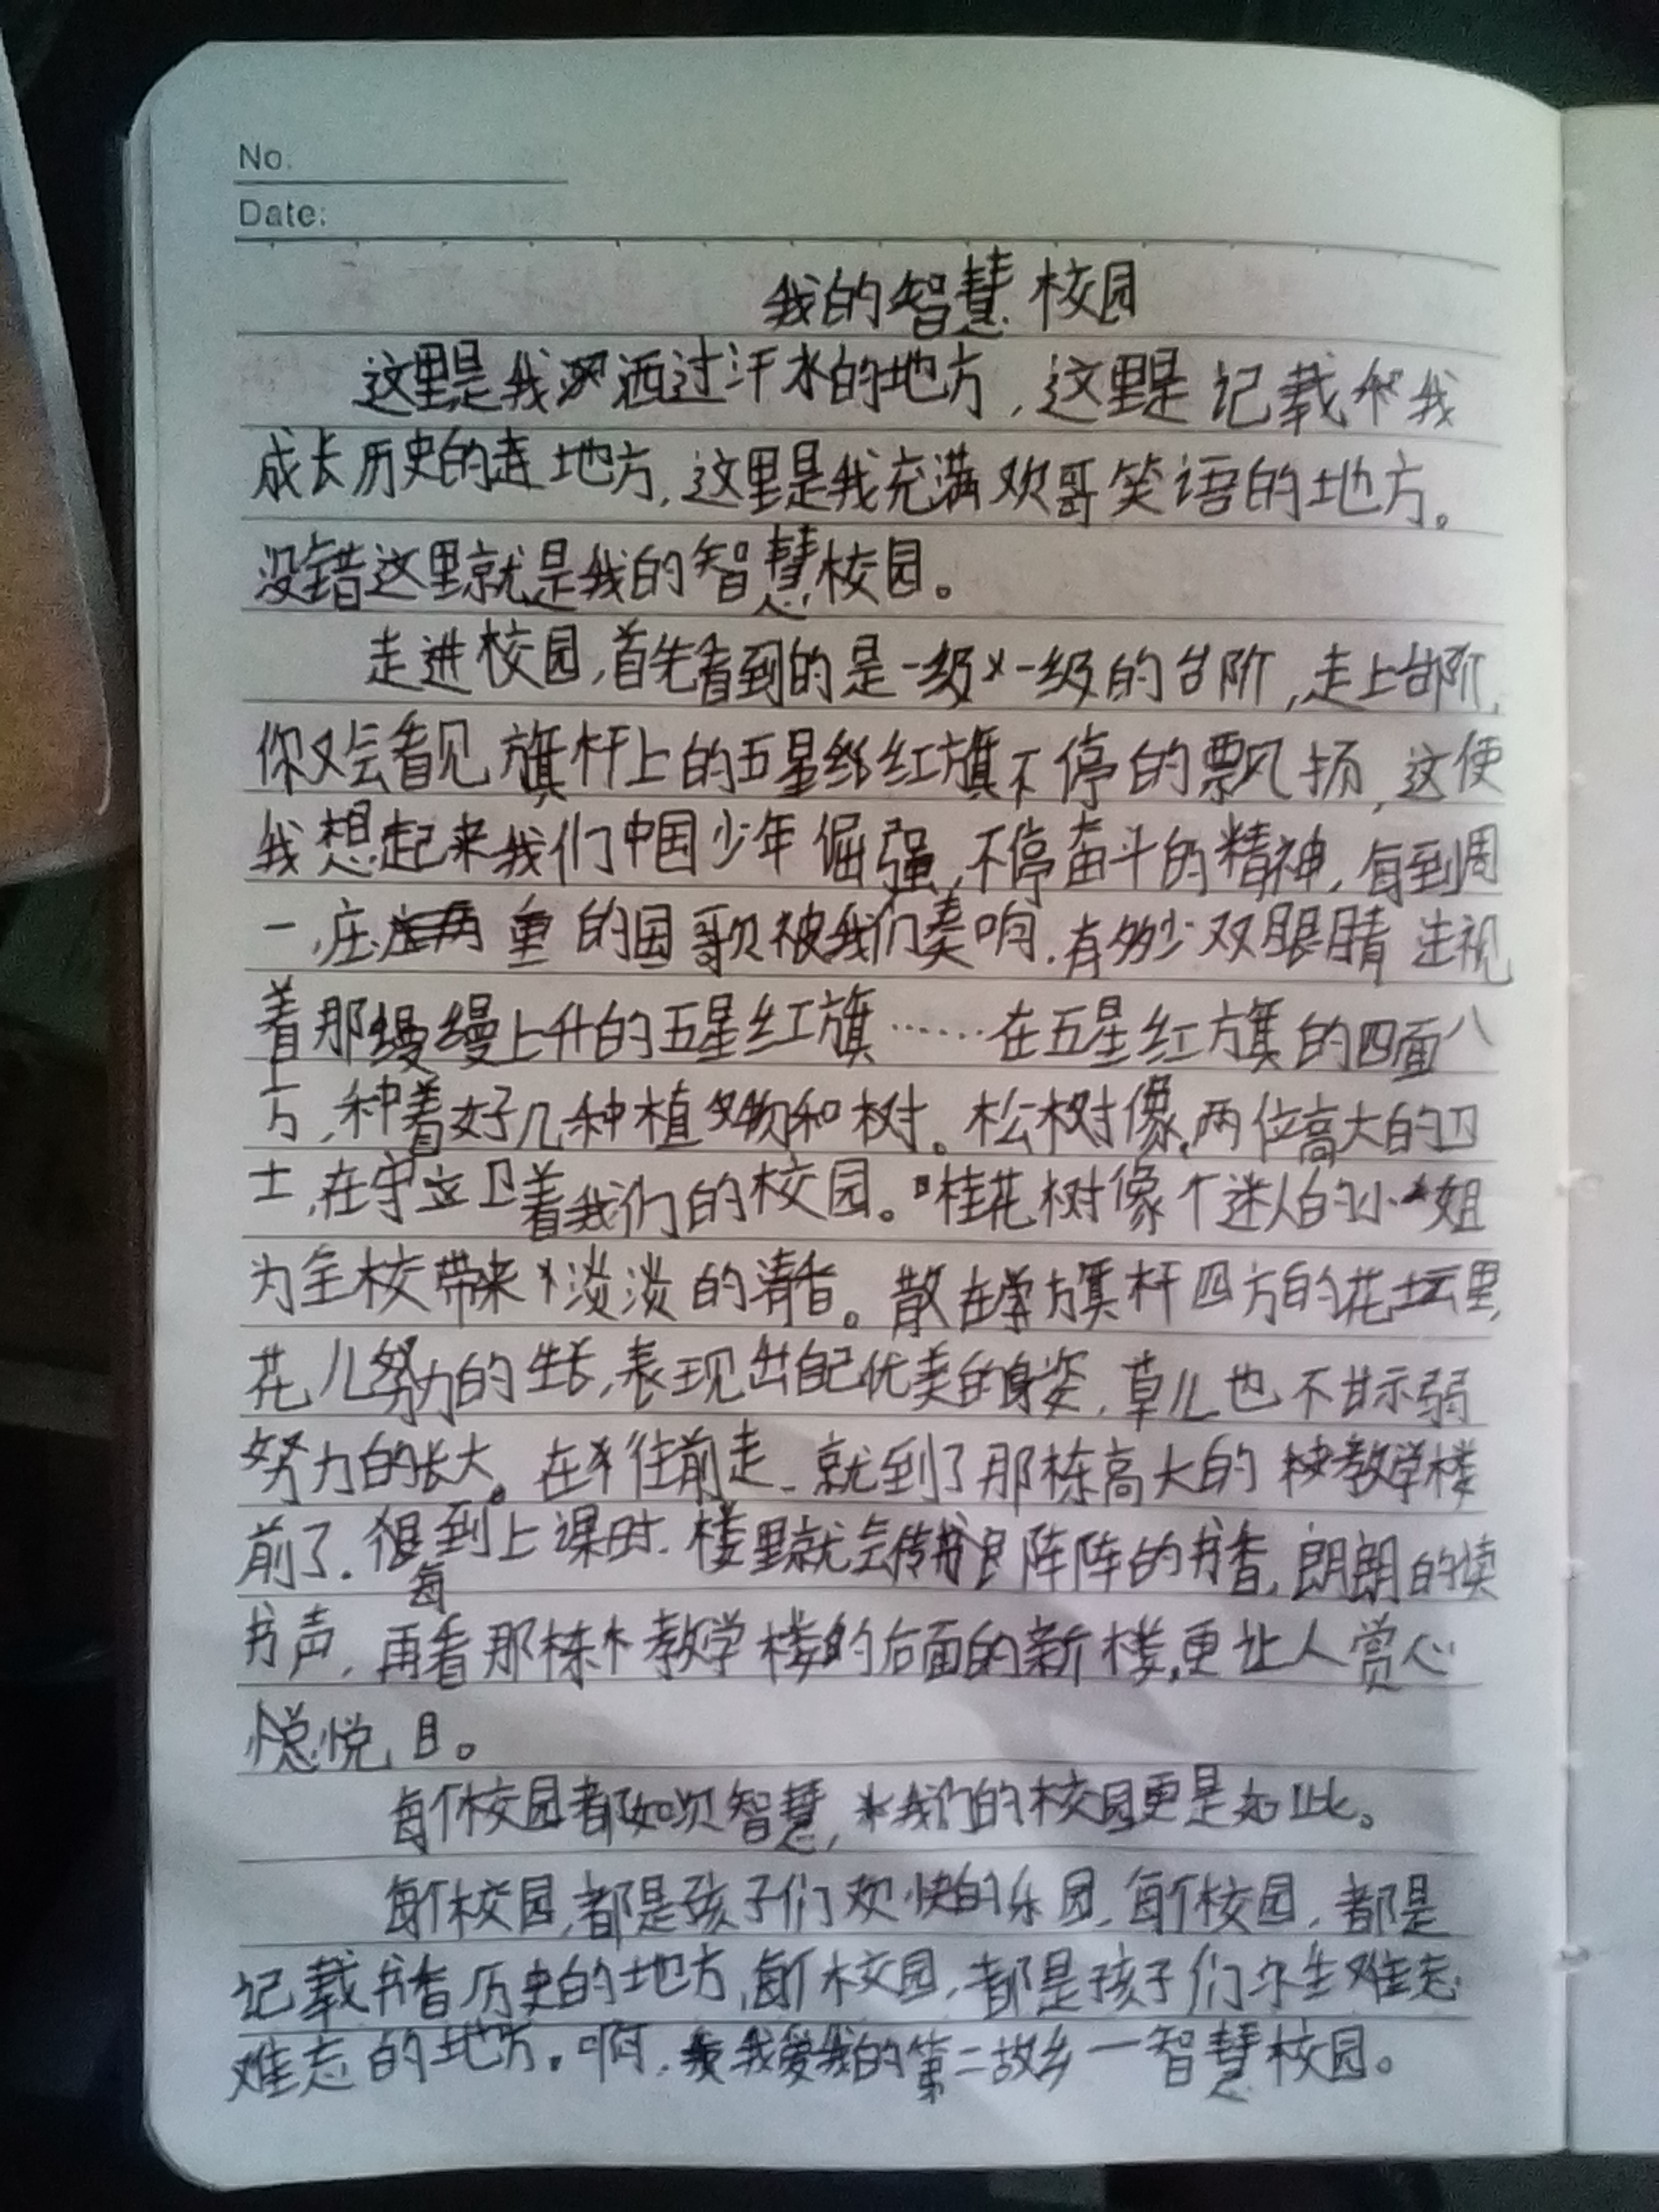 No.
Date:
我的智慧校园
这里是我洒过汗水的地方，这里是记载我
成长历史的地方，这里是我充满欢哥笑语的地方。
没错这里就是我的智慧校园。
走进校园，首先看到的是一级一级的台阶，走上台阶，
你又会看见旗杆上的五星红旗不停的飘扬，这使
我想起来我们中国少年倔强，不停奋斗的精神，每到周
一，庄重的国歌被我们奏响，有多少双眼睛注视
着那缓缓上升的五星红旗……在五星红旗的四面八
方，种着好几种植物和树。松树像两位高大的卫
士，在守卫着我们的校园。桂花树像个迷人的小姐
为全校带来淡淡的清香。散在旗杆四方的花坛里，
花儿努力的生长，表现出自己优美的身姿，草儿也不甘示弱
努力的长大。在往前走，就到了那栋高大的教学楼
前了，每到上课时，楼里就会传阵阵的书香，朗朗的读
书声，再看那栋教学楼的后面的新楼，更让人赏心
悦目。
每个校园都如此智慧，我们的校园更是如此。
每个校园，都是孩子们欢快的乐园，每个校园，都是
记载书香历史的地方，每个校园，都是孩子们终生难忘
难忘的地方。啊，我爱我的第二故乡一智慧校园。